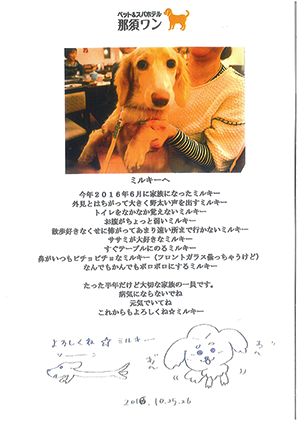 ペット&スパホテル
那須ワン
ミルキーへ
今年2016年6月に家族になったミルキー
外見とはちがって大きく野太い声を出すミルキー
トイレをなかなか覚えないミルキー
お腹がちょっと弱いミルキー
散歩好きなくせに怖がってあまり遠い所まで行かないミルキー
ササミが大好きなミルキー
すぐテーブルにのるミルキー
鼻がいつもビチョビチョなミルキー（フロントガラス曇っちゃうけど）
なんでもかんでもボロボロにするミルキー
たった半年だけど大切な家族の一員です。
病気にならないでね
元気でいてね
これからもよろしくね☆ミルキー
よろしくね☆ミルキー
2016.10.25.26